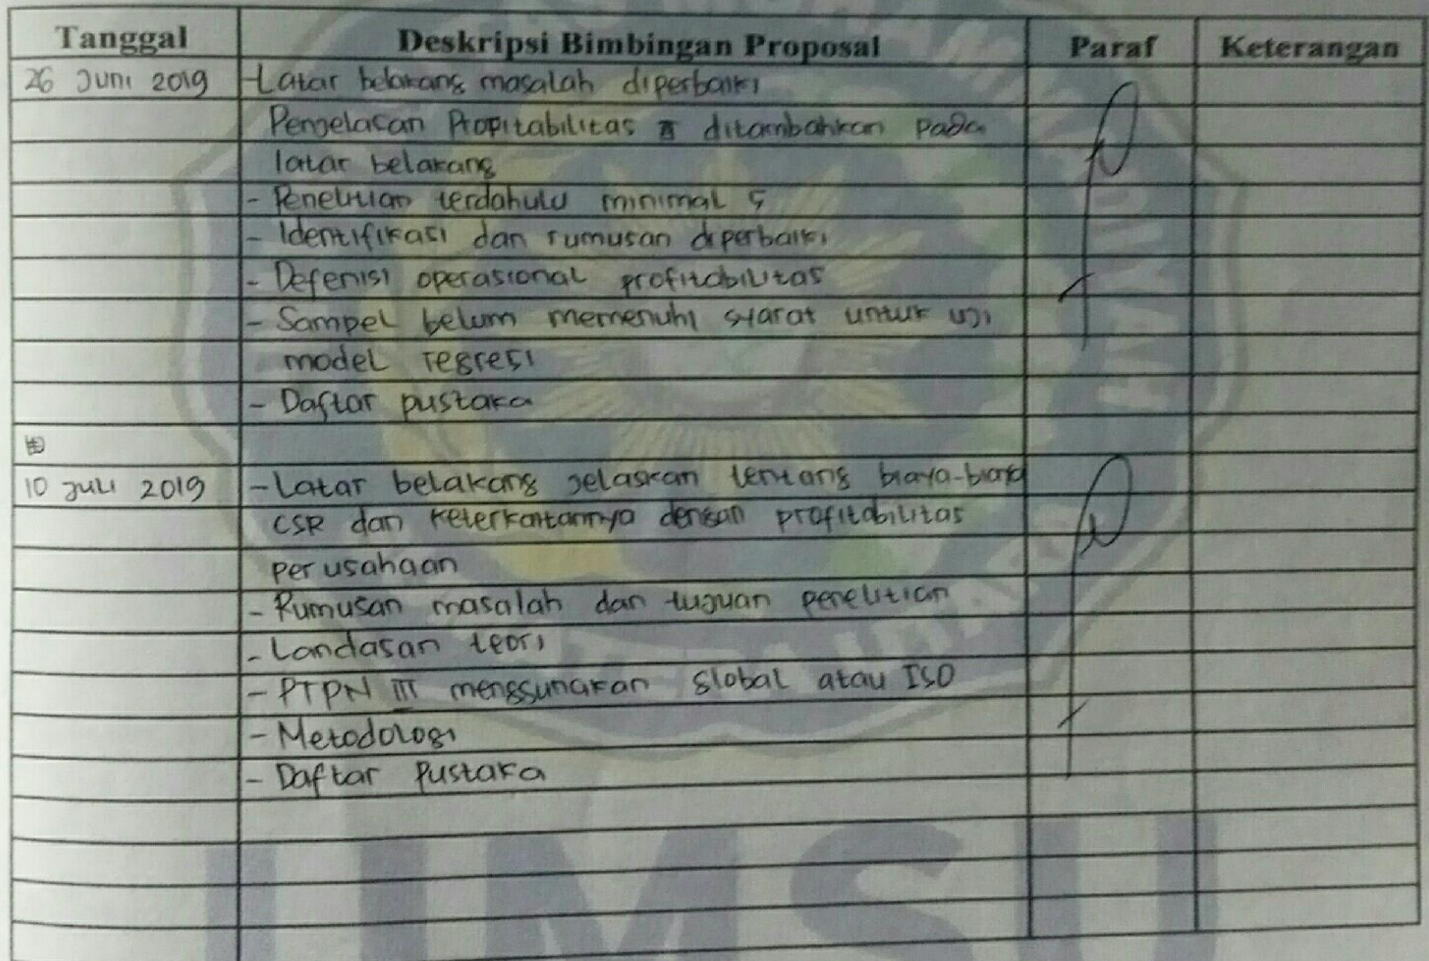 Tanggal Deskripsi Bimbingan Proposal Paraf Keterangan
26 Juni 2019 -Latar belakang masalah diperbaiki
Penjelasan Propitabilitas ditambahkan pada
latar belakang
- Penelitian terdahulu minimal 5
- Identifikasi dan rumusan diperbaiki
- Defenisi operasional profitabilitas
- Sampel belum memenuhi syarat untuk uji
model regresi
- Daftar pustaka
10 Juli 2019 - Latar belakang jelaskan tentang biaya-biaya
CSR dan keterkaitannya dengan profitabilitas
perusahaan
- Rumusan masalah dan tujuan penelitian
- Landasan teori
- PTPN III menggunakan global atau ISO
- Metodologi
- Daftar Pustaka
UMSU